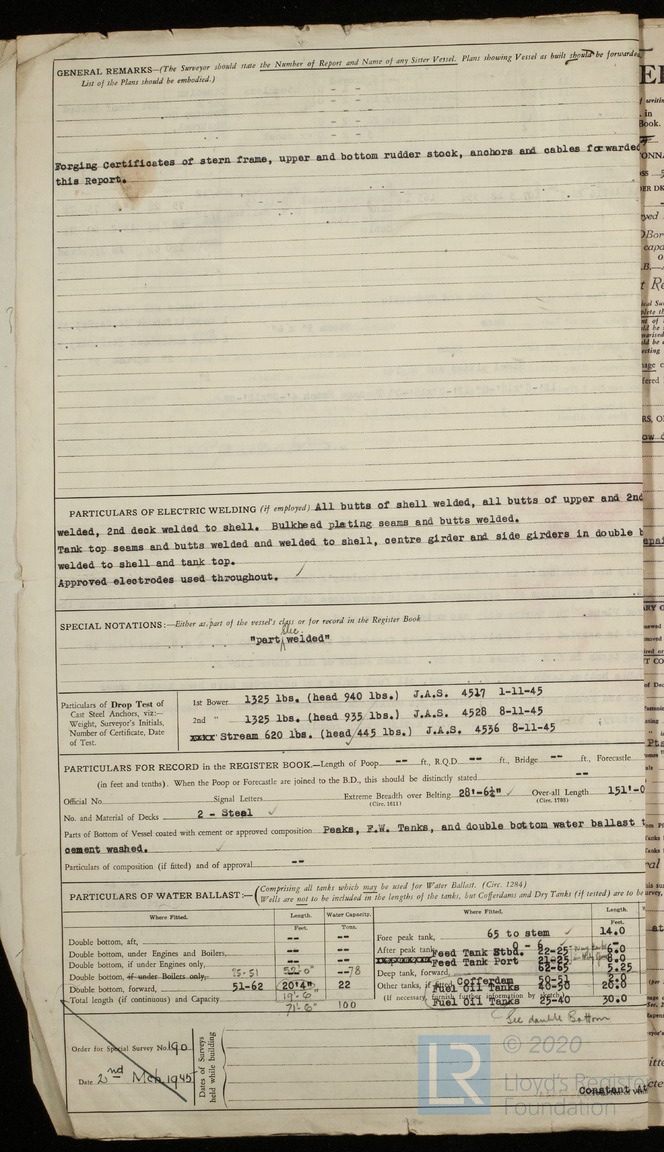 GENERAL REMARKS—(The Surveyor should state the Number of Report and Name of any Sister Vessel. Plans showing Vessel as built should be forwarded
List of the Plans should be embodied.)
Forging Certificates of stern frame, upper and bottom rudder stock, anchors and cables forwarded
this Report.
PARTICULARS OF ELECTRIC WELDING (if employed) All butts of shell welded, all butts of upper and 2nd
welded, 2nd deck welded to shell. Bulkhead plating seams and butts welded.
Tank top seams and butts welded and welded to shell, centre girder and side girders in double b
welded to shell and tank top.
Approved electrodes used throughout.
SPECIAL NOTATIONS:—Either as part of the vessel's class or for record in the Register Book
elec.
"part welded"
Particulars of Drop Test of
Cast Steel Anchors, viz:—
Weight, Surveyor's Initials,
Number of Certificate, Date
of Test.
1st Bower 1325 lbs. (head 940 lbs.) J.A.S. 4517 1-11-45
2nd " 1325 lbs. (head 935 lbs.) J.A.S. 4528 8-11-45
Stream 620 lbs. (head 445 lbs.) J.A.S. 4536 8-11-45
PARTICULARS FOR RECORD in the REGISTER BOOK.—Length of Poop -- ft., R.Q.D. -- ft., Bridge -- ft., Forecastle
(in feet and tenths). When the Poop or Forecastle are joined to the B.D., this should be distinctly stated --
Official No. Signal Letters Extreme Breadth over Belting 28'-6½" Over-all Length 151'-0
(Circ. 1611) (Circ. 1703)
No. and Material of Decks 2 - Steel
Parts of Bottom of Vessel coated with cement or approved composition Peaks, F.W. Tanks, and double bottom water ballast t
cement washed.
Particulars of composition (if fitted) and of approval --
PARTICULARS OF WATER BALLAST:—(Comprising all tanks which may be used for Water Ballast. (Circ. 1284)
Wells are not to be included in the lengths of the tanks, but Cofferdams and Dry Tanks (if tested) are to be
Where Fitted. Length. Water Capacity. Where Fitted. Length.
Feet. Tons. Feet.
Double bottom, aft, -- --
Double bottom, under Engines and Boilers, -- --
Double bottom, if under Engines only, -- --
Double bottom, if under Boilers only, 25-51 52'-0" 78
Double bottom, forward, 51-62 20'4" 22
19'-6"
Total length (if continuous) and Capacity 71'-6" 100
Fore peak tank, 65 to stem 14.0
After peak tank, 0 - 6 6.0
Feed Tank Stbd. 22-25
Feed Tank Port 21-25 8.0
Deep tank, forward, 62-65 5.25
Other tanks, if fitted Cofferdam 50-51 2.0
Fuel Oil Tanks 40-50 20.0
(If necessary, furnish further information by sketch)
Fuel Oil Tanks 25-40 30.0
See double Bottom
Order for Special Survey No. 190
Date 2nd Mch 1945
Dates of Surveys
held while building
© 2020
Lloyd's Register
Foundation
Constant At